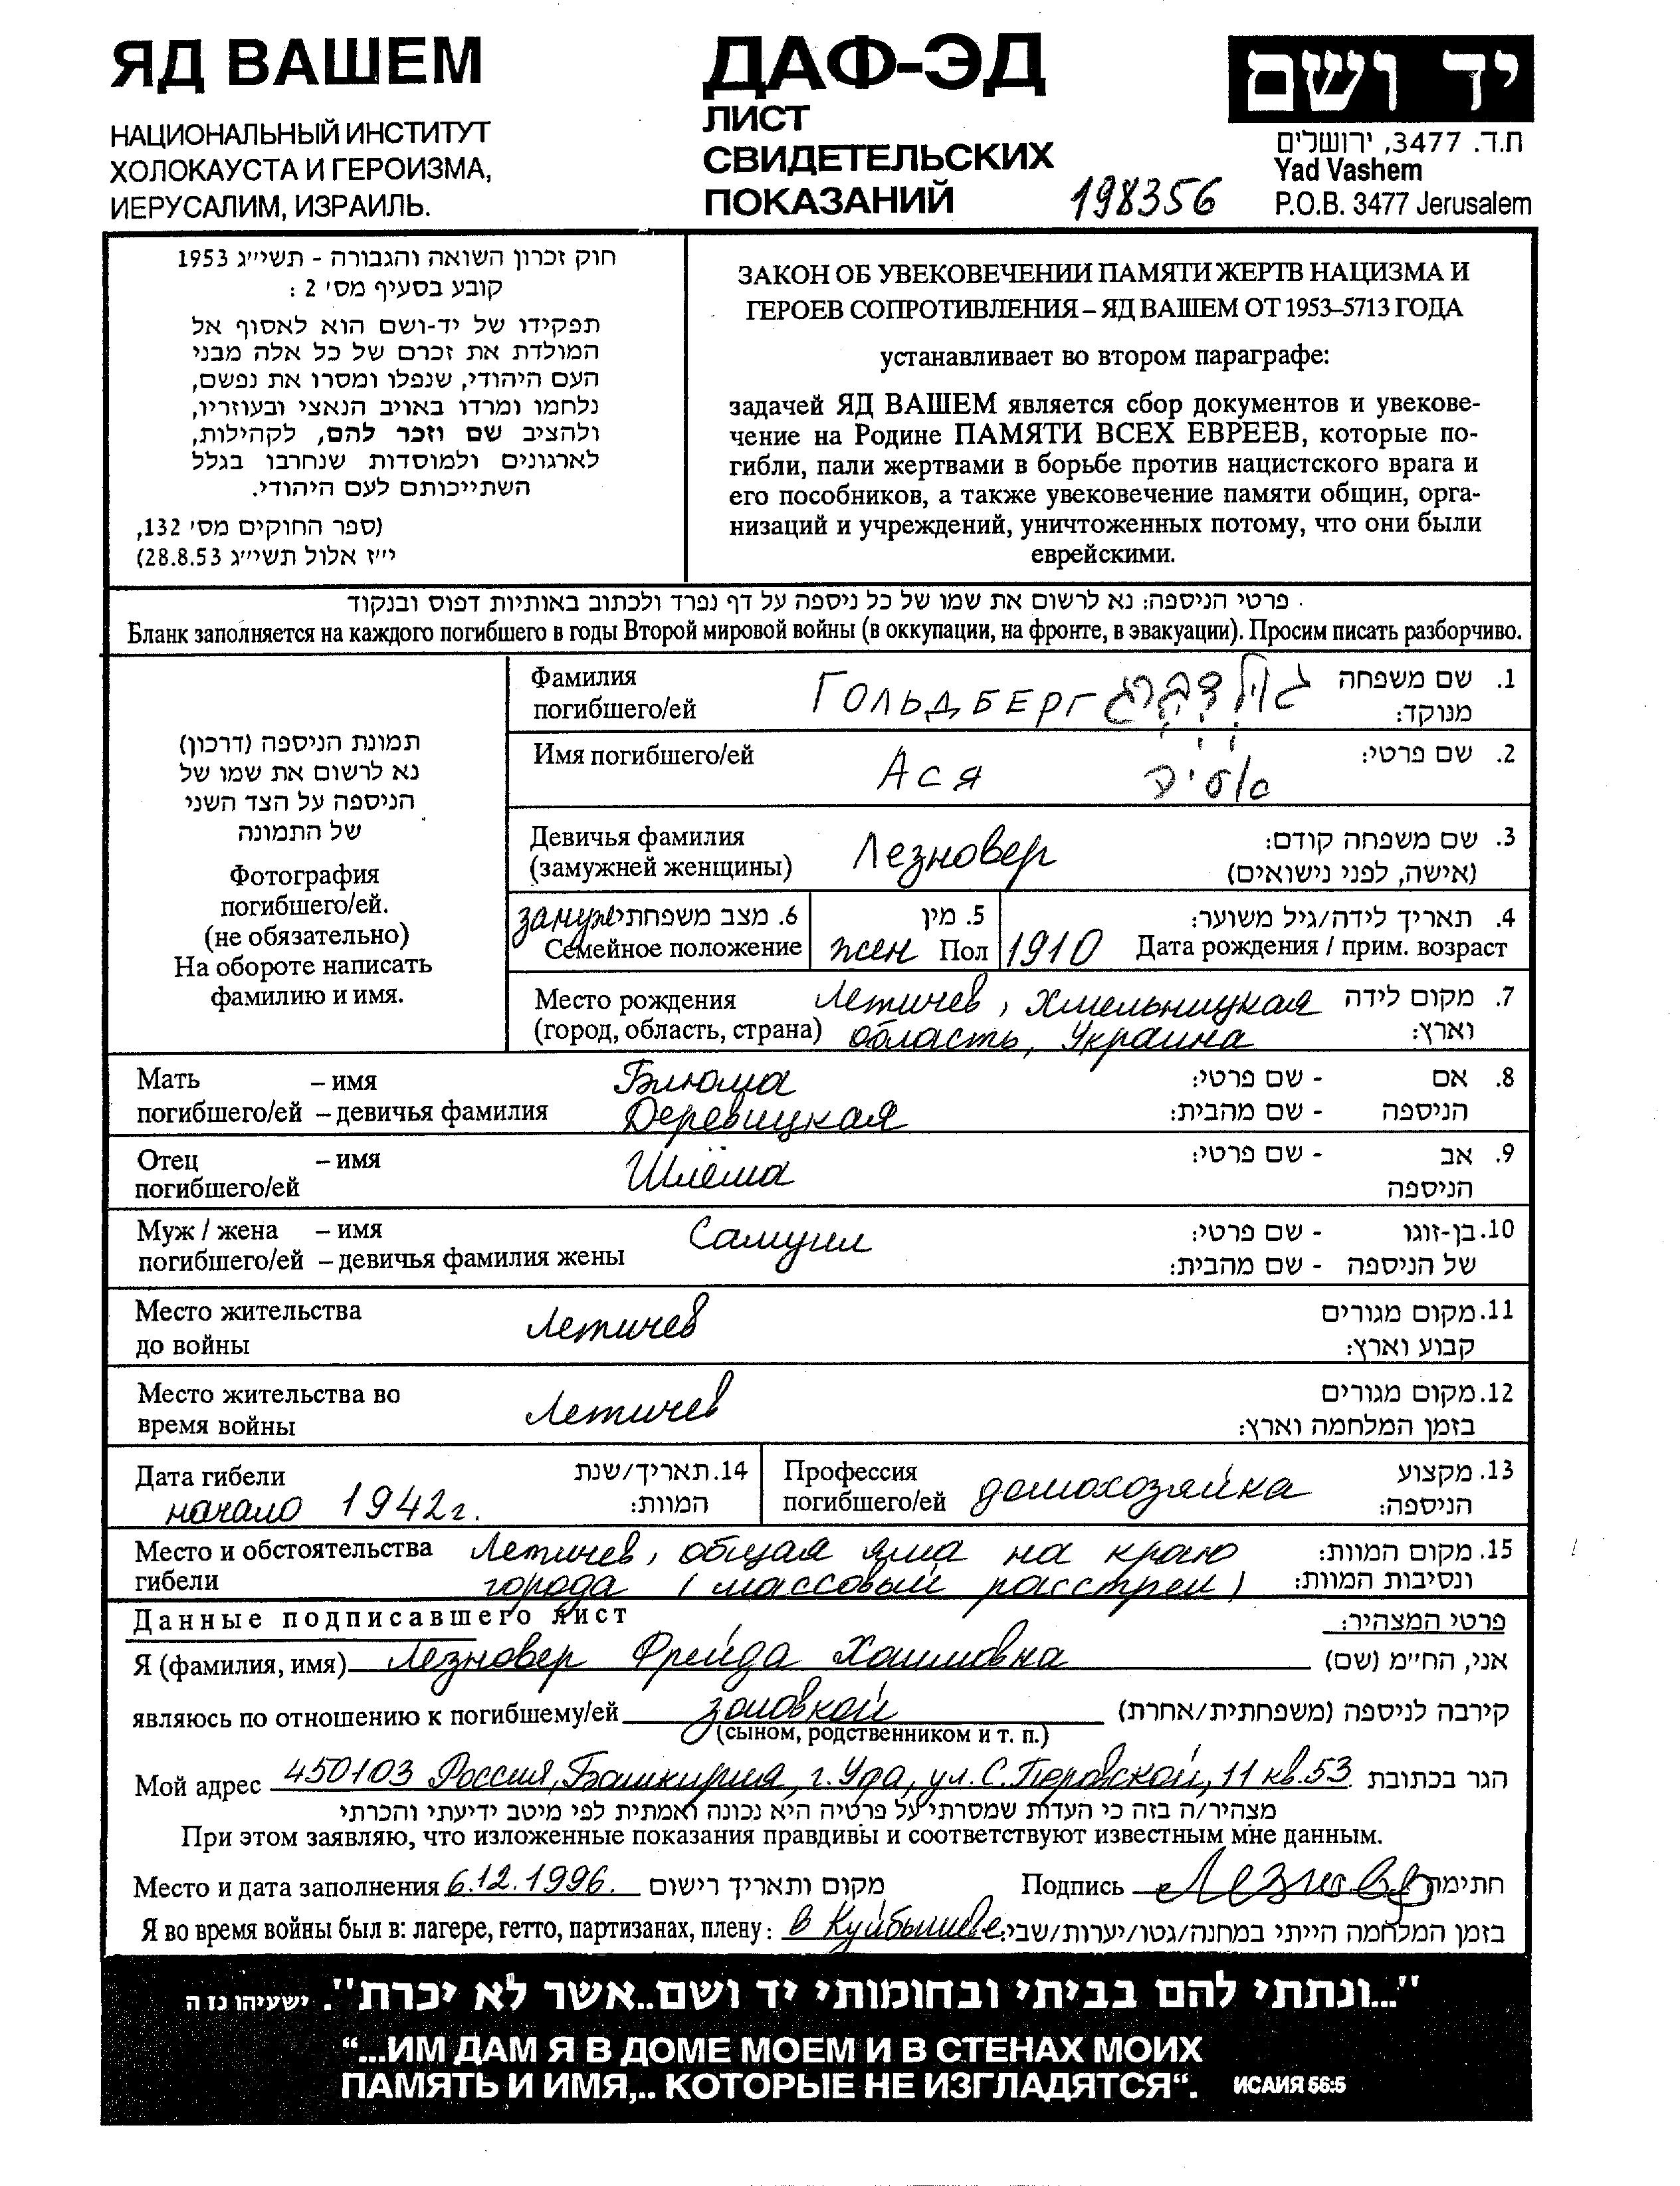 ЯД ВАШЕМ
НАЦИОНАЛЬНЫЙ ИНСТИТУТ
ХОЛОКАУСТА И ГЕРОИЗМА,
ИЕРУСАЛИМ, ИЗРАИЛЬ.
ДАФ-ЭД
ЛИСТ
СВИДЕТЕЛЬСКИХ
ПОКАЗАНИЙ
198356
יד ושם
ת.ד. 3477, ירושלים
Yad Vashem
P.O.B. 3477 Jerusalem
חוק זכרון השואה והגבורה - תשי״ג 1953
קובע בסעיף מס׳ 2 :
תפקידו של יד-ושם הוא לאסוף אל
המולדת את זכרם של כל אלה מבני
העם היהודי, שנפלו ומסרו את נפשם,
נלחמו ומרדו באויב הנאצי ובעוזריו,
ולהציב שם וזכר להם, לקהילות,
לארגונים ולמוסדות שנחרבו בגלל
השתייכותם לעם היהודי.
(ספר החוקים מס׳ 132,
י״ז אלול תשי״ג 28.8.53)
ЗАКОН ОБ УВЕКОВЕЧЕНИИ ПАМЯТИ ЖЕРТВ НАЦИЗМА И
ГЕРОЕВ СОПРОТИВЛЕНИЯ – ЯД ВАШЕМ ОТ 1953–5713 ГОДА
устанавливает во втором параграфе:
задачей ЯД ВАШЕМ является сбор документов и увекове-
чение на Родине ПАМЯТИ ВСЕХ ЕВРЕЕВ, которые по-
гибли, пали жертвами в борьбе против нацистского врага и
его пособников, а также увековечение памяти общин, орга-
низаций и учреждений, уничтоженных потому, что они были
еврейскими.
פרטי הניספה: נא לרשום את שמו של כל ניספה על דף נפרד ולכתוב באותיות דפוס ובנקוד
Бланк заполняется на каждого погибшего в годы Второй мировой войны (в оккупации, на фронте, в эвакуации). Просим писать разборчиво.
תמונת הניספה (דרכון)
נא לרשום את שמו של
הניספה על הצד השני
של התמונה
Фотография
погибшего/ей.
(не обязательно)
На обороте написать
фамилию и имя.
Фамилия ГОЛЬДБЕРГ גולדברג 1. שם משפחה
погибшего/ей מנוקד:
Имя погибшего/ей Ася אסיה 2. שם פרטי:
Девичья фамилия Лезновер 3. שם משפחה קודם:
(замужней женщины) (אישה, לפני נישואים)
замужем 6. מצב משפחתי 5. מין 4. תאריך לידה/גיל משוער:
Семейное положение жен Пол 1910 Дата рождения / прим. возраст
Место рождения Летичев, Хмельницкая 7. מקום לידה
(город, область, страна) область, Украина וארץ:
Мать – имя Блюма - שם פרטי: 8. אם
погибшего/ей – девичья фамилия Деревицкая - שם מהבית: הניספה
Отец – имя Шлёма - שם פרטי: 9. אב
погибшего/ей הניספה
Муж / жена – имя Самуил - שם פרטי: 10. בן-זוגו
погибшего/ей – девичья фамилия жены - שם מהבית: של הניספה
Место жительства Летичев 11. מקום מגורים
до войны קבוע וארץ:
Место жительства во Летичев 12. מקום מגורים
время войны בזמן המלחמה וארץ:
Дата гибели 14. תאריך/שנת
начало 1942г. המוות:
Профессия домохозяйка 13. מקצוע
погибшего/ей הניספה:
Место и обстоятельства Летичев, общая яма на краю 15. מקום המוות:
гибели города (массовый расстрел) ונסיבות המוות:
Данные подписавшего лист פרטי המצהיר:
Я (фамилия, имя) Лезновер Фрейда Хаимовна אני, החי״מ (שם)
являюсь по отношению к погибшему/ей золовкой קירבה לניספה (משפחתית/אחרת)
(сыном, родственником и т. п.)
Мой адрес 450103 Россия, Башкирия, г. Уфа, ул. С. Перовской, 11 кв.53 הגר בכתובת
מצהיר/ה בזה כי העדות שמסרתי על פרטיה היא נכונה ואמתית לפי מיטב ידיעתי והכרתי
При этом заявляю, что изложенные показания правдивы и соответствуют известным мне данным.
Место и дата заполнения 6.12.1996. מקום ותאריך רישום Подпись Лезновер חתימת
Я во время войны был в: лагере, гетто, партизанах, плену: в Куйбышеве בזמן המלחמה הייתי במחנה/גטו/יערות/שבי:
"...ונתתי להם בביתי ובחומותי יד ושם..אשר לא יכרת". ישעיהו נז ה
“...ИМ ДАМ Я В ДОМЕ МОЕМ И В СТЕНАХ МОИХ
ПАМЯТЬ И ИМЯ,.. КОТОРЫЕ НЕ ИЗГЛАДЯТСЯ“. ИСАИЯ 56:5